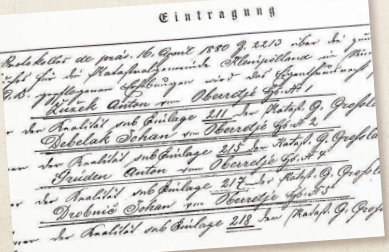 Eintragung
Protokoll de präs. 16. April 1880 Z. 2213 über die zum
für die Katastralgemeinde
gepflogenen Erhebungen wird das Eigenthumsrecht
Žužek Anton von Oberrdje Hs. N. 1
der Realität sub Einlage 211 der Katast. G. Großla
Debelak Johan von Oberrdje Hs. N. 2
der Realität sub Einlage 215 der Katast. G. Großla
Gruden Anton von Oberrdje Hs. N. 4
der Realität sub Einlage 217 der Katast. G. Großla
Drobnič Johan von Oberrdje Hs. N. 5
der Realität sub Einlage 218 der Katast. G. Großla